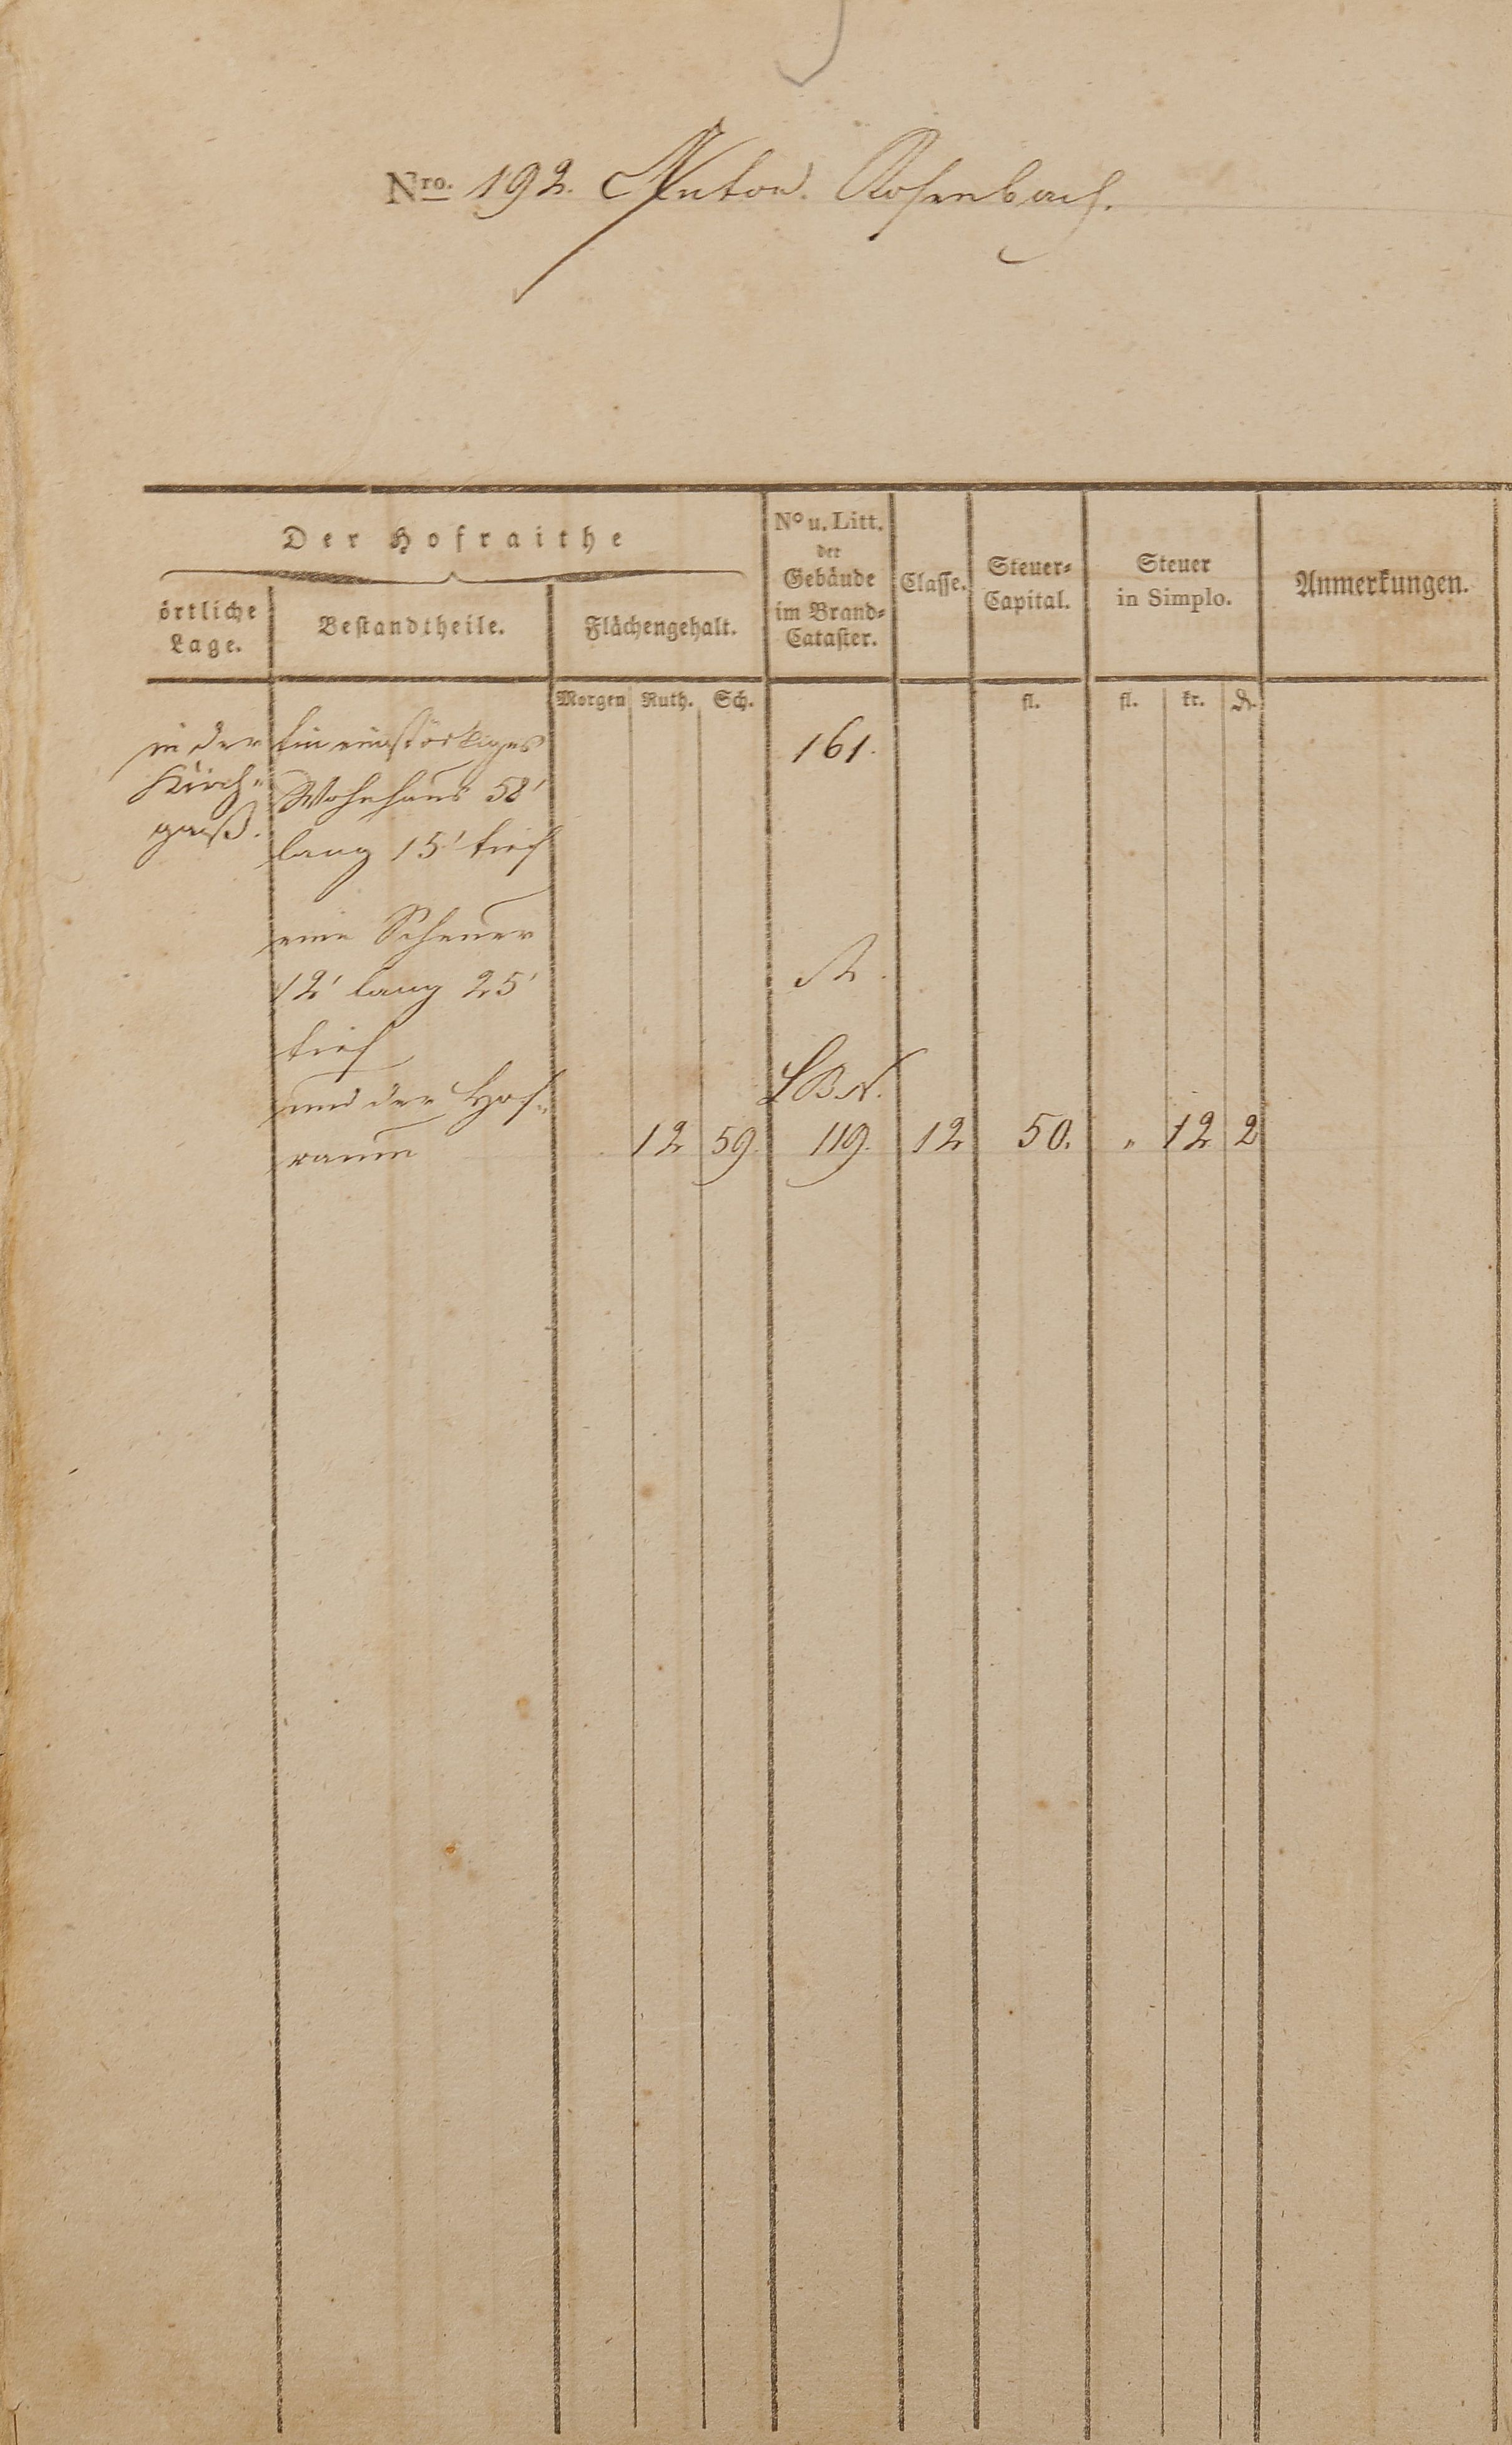 Nro. 192. Anton. Rosenbach.
Der Hofraithe
örtliche
Lage.
Bestandtheile.
Flächengehalt.
No u. Litt.
der
Gebäude
im Brand-
Cataster.
Classe.
Steuer-
Capital.
Steuer
in Simplo.
Anmerkungen.
Morgen Ruth. Sch. fl. fl. kr. d.
in der
Kirch-
gaß.
Ein einstöckiges
Wohnhaus 58'
lang 15' tief
161.
eine Scheuer
12' lang 25'
tief
A.
und der Hof-
raum
L B N.
12 59. 119. 12 50. " 12 2